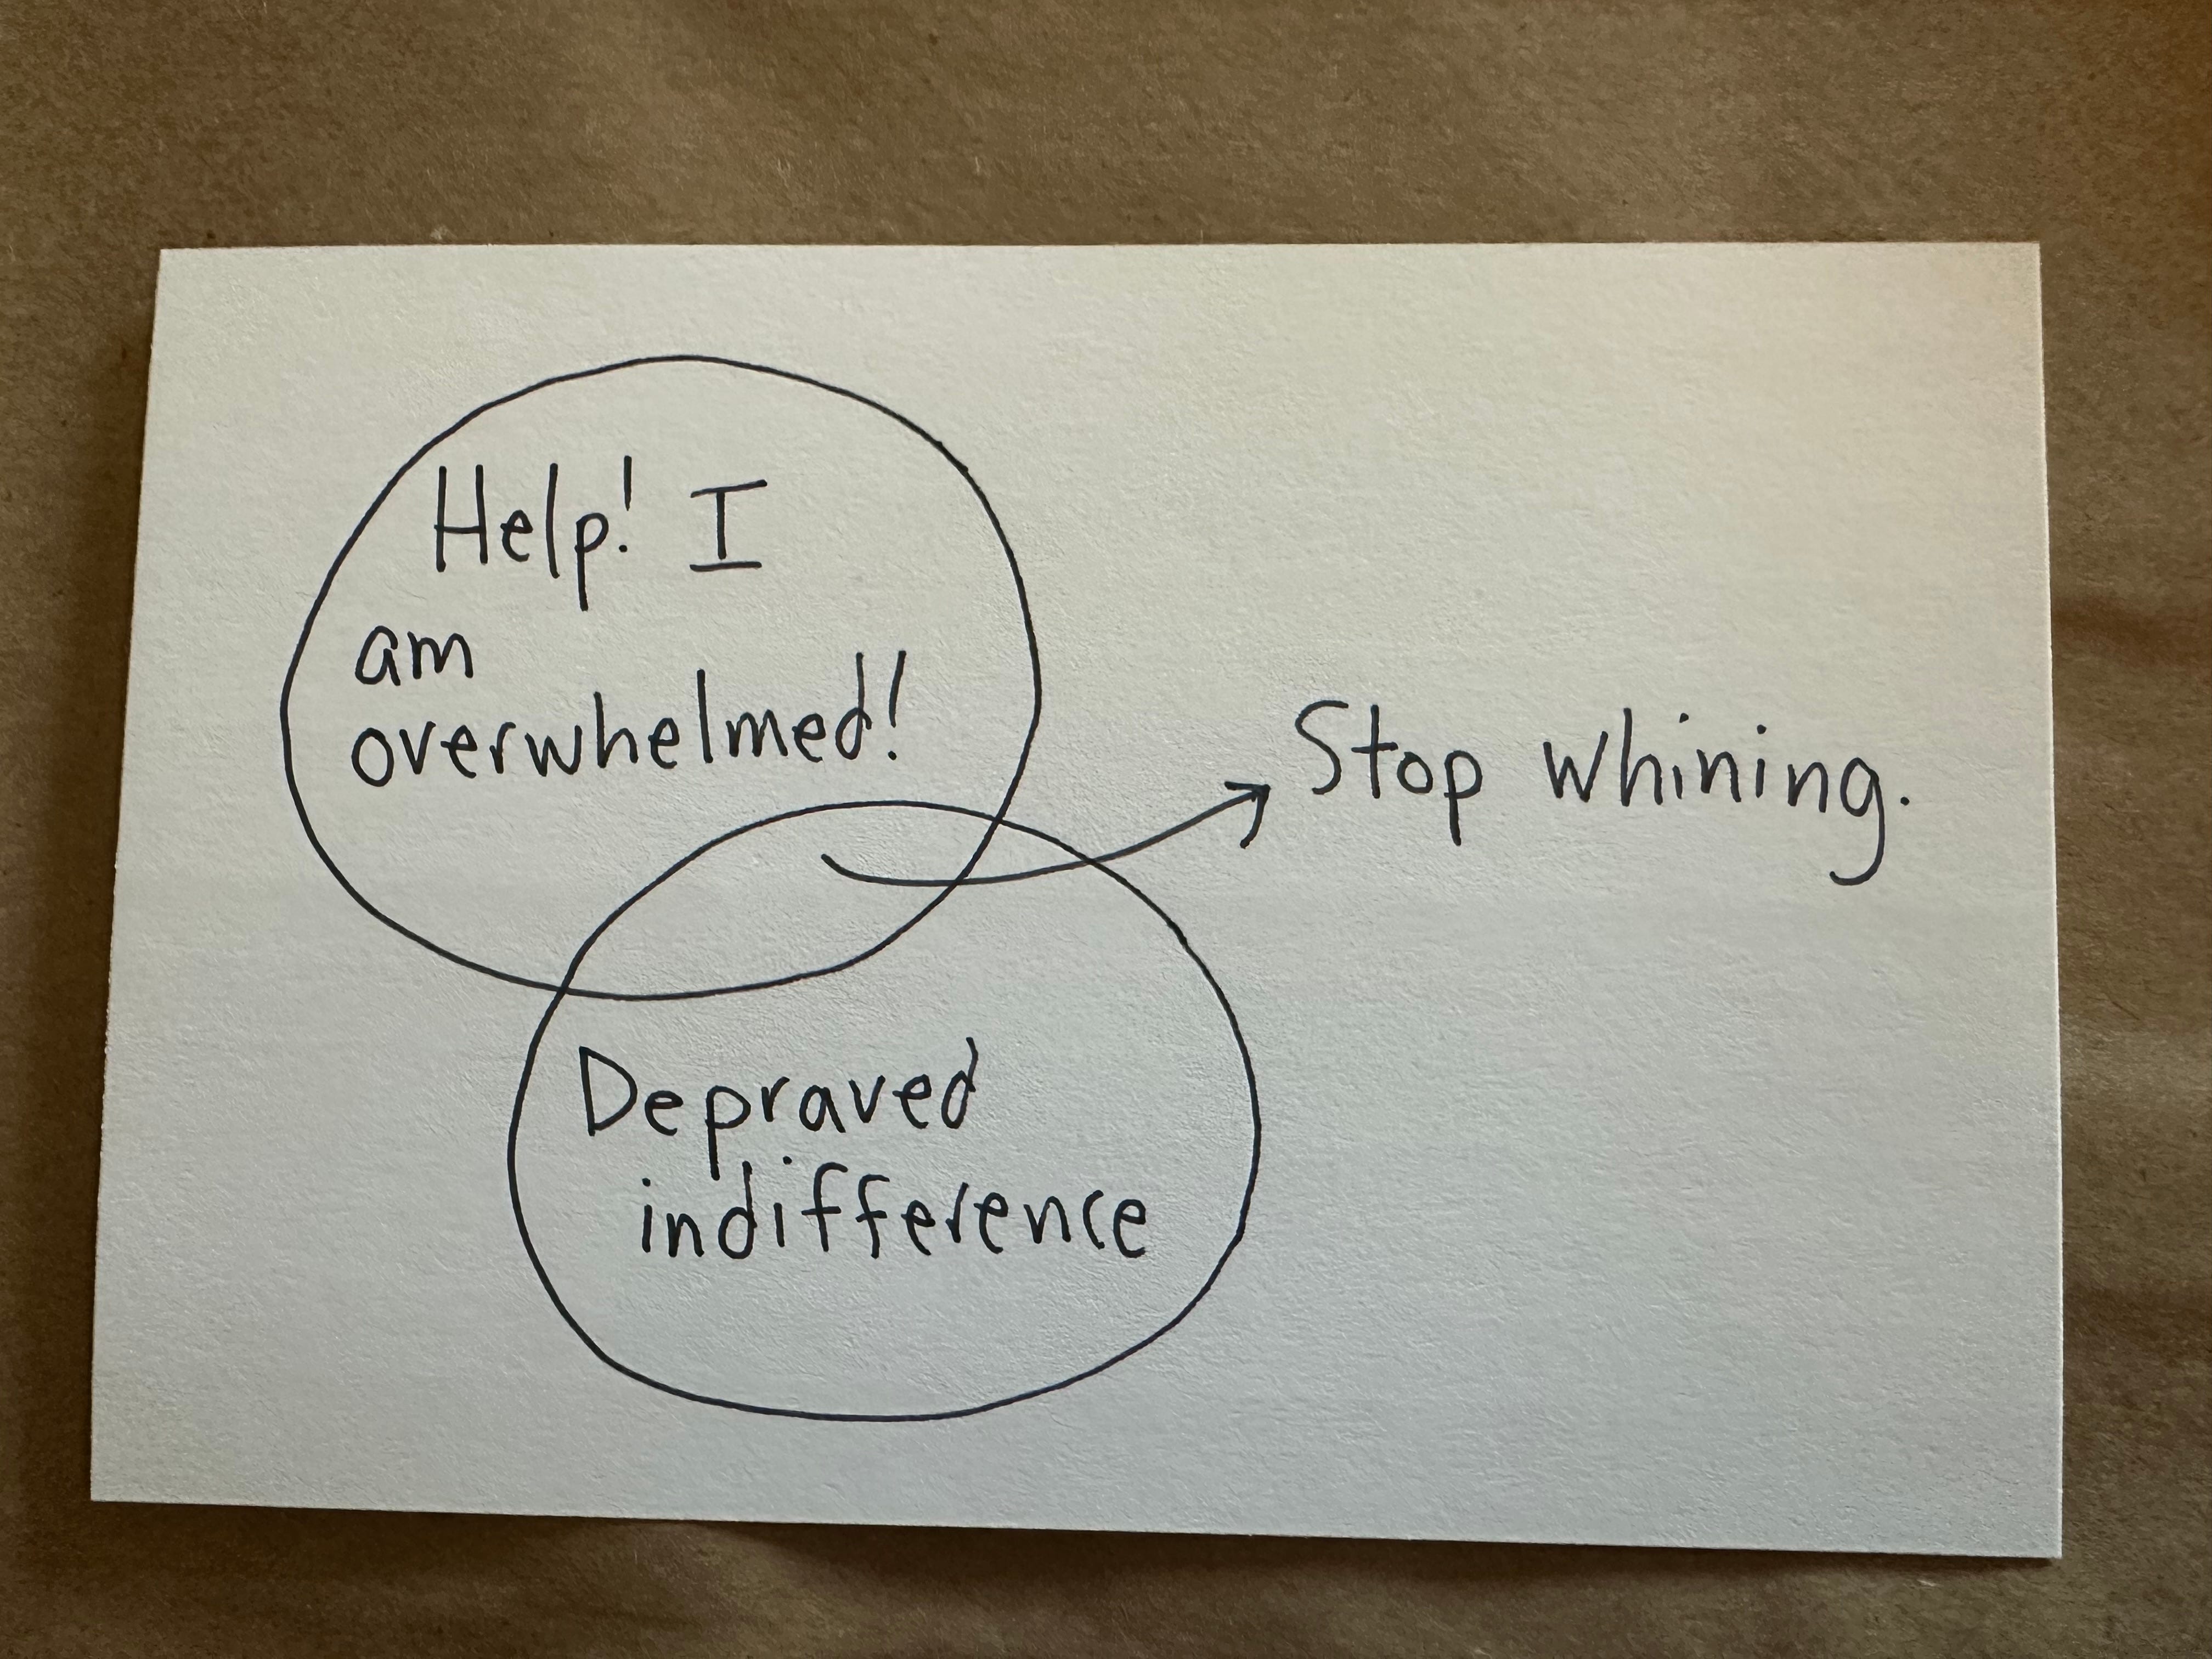 Help! I
am
overwhelmed!
Stop whining.
Depraved
indifference